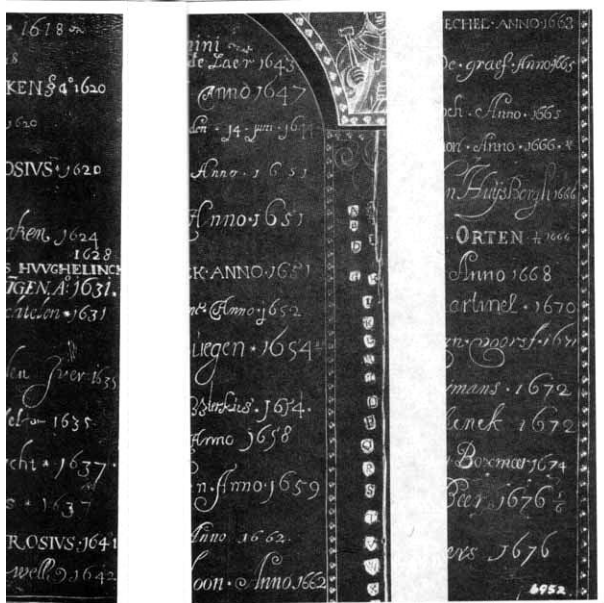 1618
KEN & aº 1620
1620
OSIVS · 1620
aken 1624
1628
S HVVGHELINCK
TGEN. A: 1631.
chtelen · 1631
den Zver 1635
1635
cht · 1637 ·
s · 1637
ROSIVS · 1641
well 1642
mini
de Laer 1643
Anno 1647
den · 14 · juni · 1649
Anno · 1651
Anno · 1651
K · ANNO · 1651
Anno · 1652
uegen · 1654
1654 ·
Anno 1658
n · Anno · 1659
Anno 1662
oon · Anno 1662
ECHEL · ANNO · 1663
De · graef · Anno 1665
och · Anno · 1665
on · Anno · 1666 ·
n Huijs Bergh 1666
ORTEN 1666
Anno 1668
artinel · 1670
1671
mans · 1672
lenck 1672
Boxmaer 1674
Beer 1676
ers 1676
6952